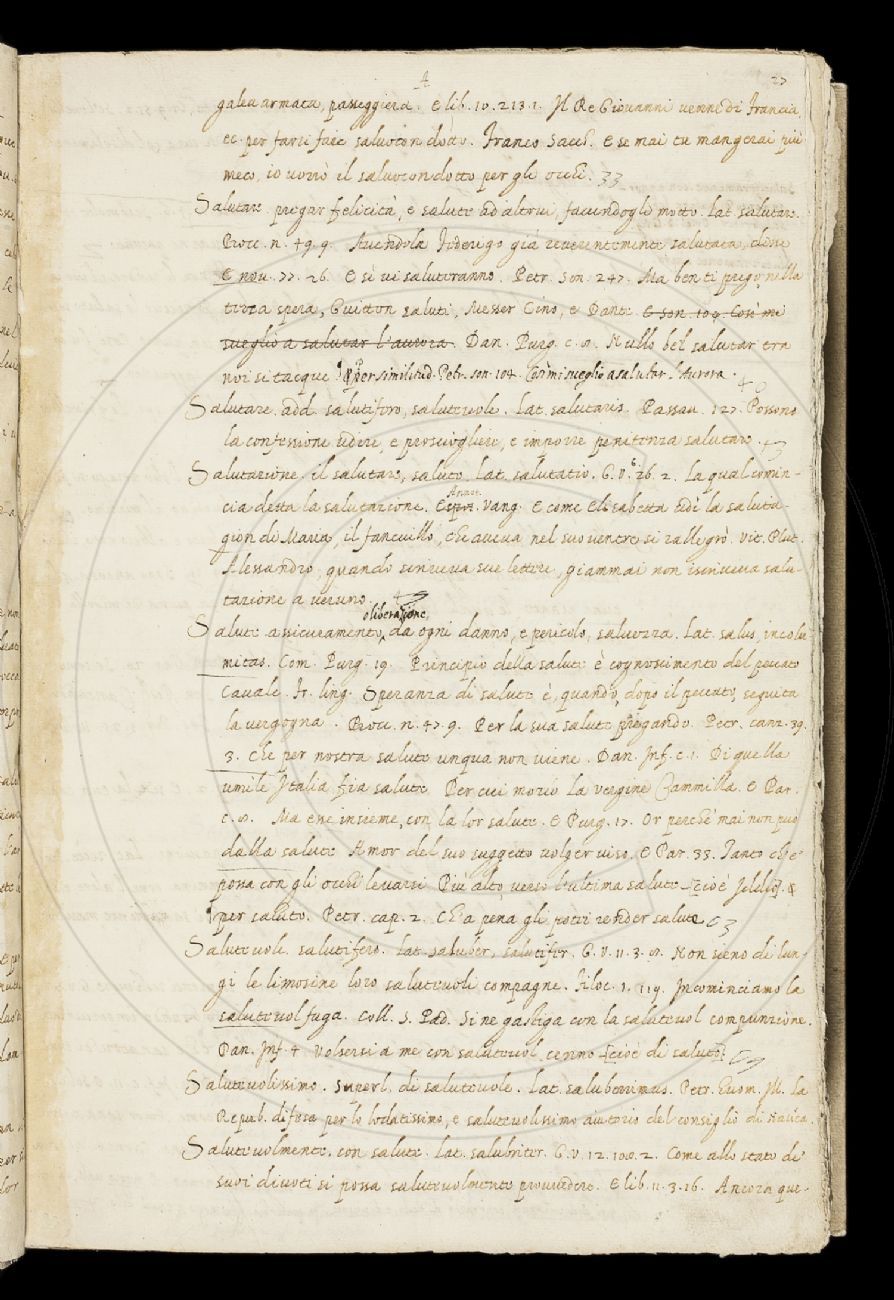 A 27
galea armata, passeggiera. E lib. 10. 213. 1. Il Re Giovanni venne di Francia,
ec. per farsi fare salvocondotto. Franco Sacch. E se mai tu mangerai più
meco, io vorrò il salvocondotto per gli occhi. 33
Salutare. pregar felicità, e salute ad altrui, facendogli motto. Lat. salutare.
Bocc. n. 49. 9. Avendola Federigo già reverentemente salutata, disse
E nov. 77. 26. E sì vi saluteranno. Petr. Son. 247. Ma ben ti prego, nella
terza spera, Guitton saluti, Messer Cino, e Dante. E son. 104. Così mi
sveglio a salutar l'aurora. Dan. Purg. c. 8. Nullo bel salutar tra
noi si tacque per similitud. Petr. son. 104. Così mi sveglio a salutar l'Aurora.
Salutare. add. salutifero, salutevole. Lat. salutaris. Passav. 127. Possono
la confessione udire, e prosciogliere, e imporre penitenza salutare.
Salutazione. il salutare, saluto. Lat. salutatio. G. V. 6. 26. 2. La qual comin-
cia detta la salutazione. Annot. Vang. E come Elisabetta udì la saluta-
gion di Maria, il fanciullo, che aveva nel suo ventre si rallegrò. Vit. Plut.
Alessandro, quando scriveva sue lettere, giammai non iscriveva salu-
tazione a veruno.
o liberazione,
Salute assicuramento, da ogni danno, e pericolo, salvezza. Lat. salus, incolu-
mitas. Com. Purg. 19. Principio della salute è cognoscimento del peccato
Cavalc. Fr. ling. Speranza di salute è, quando, dopo il peccato, seguita
la vergogna. Bocc. n. 47. 9. Per la sua salute pregando. Petr. canz. 39.
3. Che per nostra salute unqua non viene. Dan. Inf. c. 1. Di quella
umile Italia fia salute Per cui morio la vergine Cammilla. E Par.
c. 8. Ma esse insieme, con la lor salute. E Purg. 17. Or perchè mai non può
dalla salute Amor del suo suggetto volger viso. E Par. 33. Tanto che
possa con gli occhi levarsi Più alto, verso l'ultima salute [cioè Iddio]. &
per saluto. Petr. cap. 2. Ch'a pena gli potei render salute
Salutevole. salutifero. Lat. saluber, salutifer. G. V. 11. 3. 8. Non sieno di lun-
gi le limosine loro salutevoli compagne. Filoc. 1. 119. Incominciamo la
salutevol fuga. Coll. S. Pad. Si ne gastiga con la salutevol compunzione.
Dan. Inf. 4 Volsersi a me con salutevol, cenno [cioè di saluto]
Salutevolissimo. Superl. di salutevole. Lat. saluberrimus. Petr. Huom. Ill. La
Repub. difesa per lo lodatissimo, e salutevolissimo aiutorio del consiglio di
Salutevolmente. con salute. Lat. salubriter. G. V. 12. 108. 2. Come allo stato de'
suoi divoti si possa salutevolmente provvedere. E lib. 11. 3. 16. Ancora que-